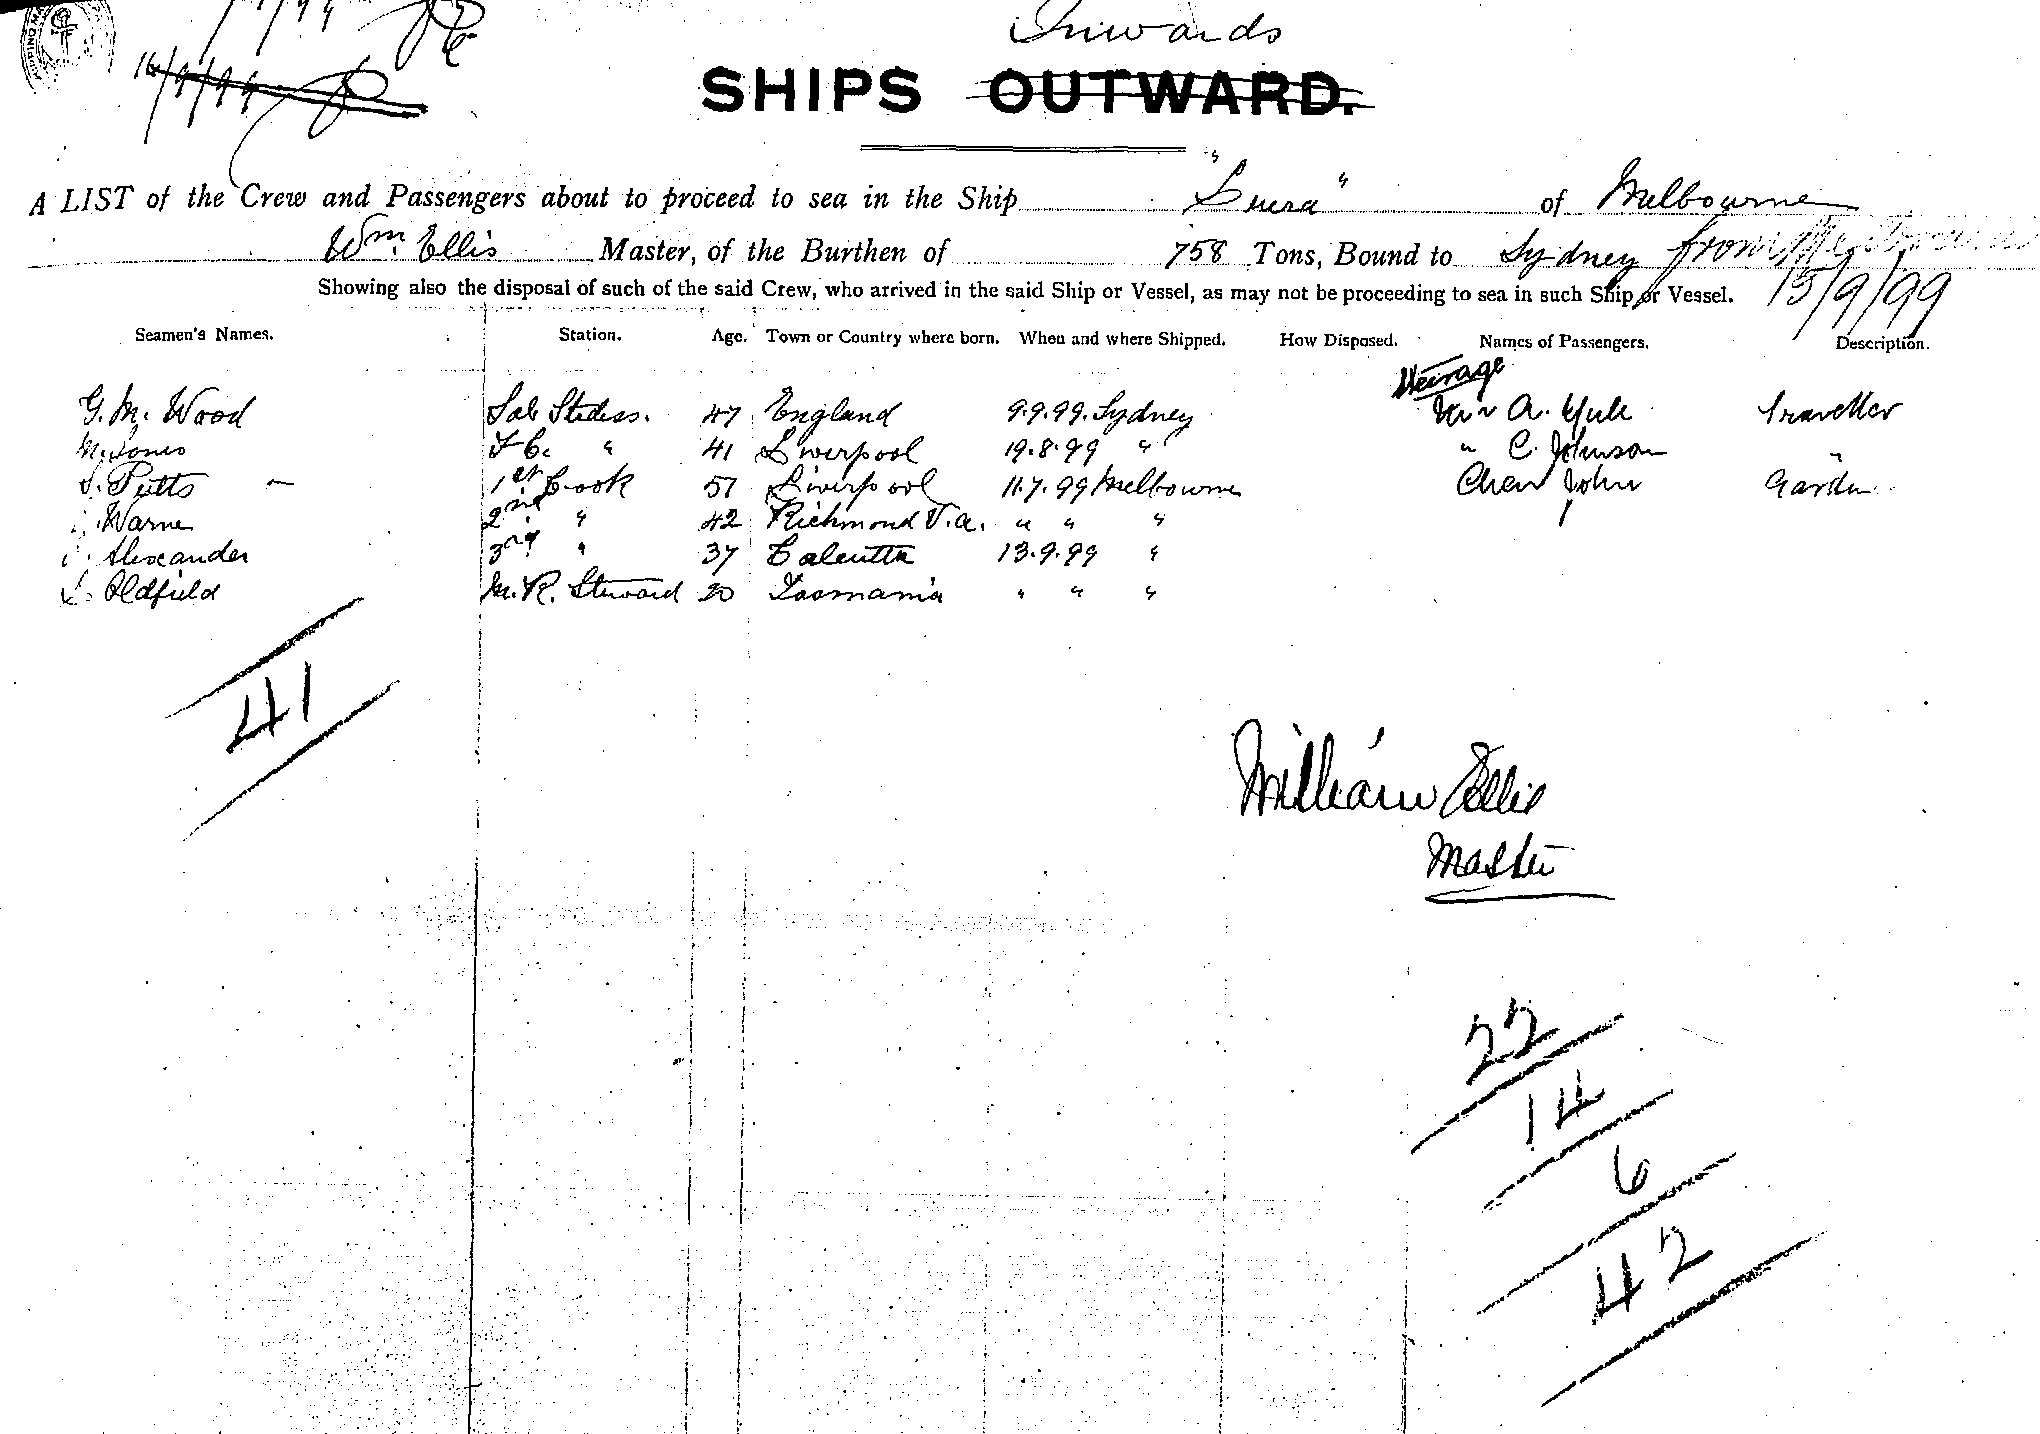 Inwards
16/9/99
SHIPS OUTWARD.
A LIST of the Crew and Passengers about to proceed to sea in the Ship "Buera" of Melbourne
Wm. Ellis Master, of the Burthen of 758 Tons, Bound to Sydney from Melbourne
Showing also the disposal of such of the said Crew, who arrived in the said Ship or Vessel, as may not be proceeding to sea in such Ship or Vessel. 15/9/99
Seamen's Names. Station. Age. Town or Country where born. When and where Shipped. How Disposed. Names of Passengers. Description.
Steerage
G. M. Wood 47 England 9.9.99. Sydney A. Yule Traveller
Jones F C. " 41 Liverpool 19.8.99 " " C. Johnson "
Potts — 1st Cook 51 Liverpool 11.7.99 Melbourne John
Warne 2nd " 42 Richmond V.a. " " "
Alexander 3rd " 37 Calcutta 13.9.99 "
Oldfield M.R. Steward 20 Tasmania " " "
41
William Ellis
Master
22
14
6
42